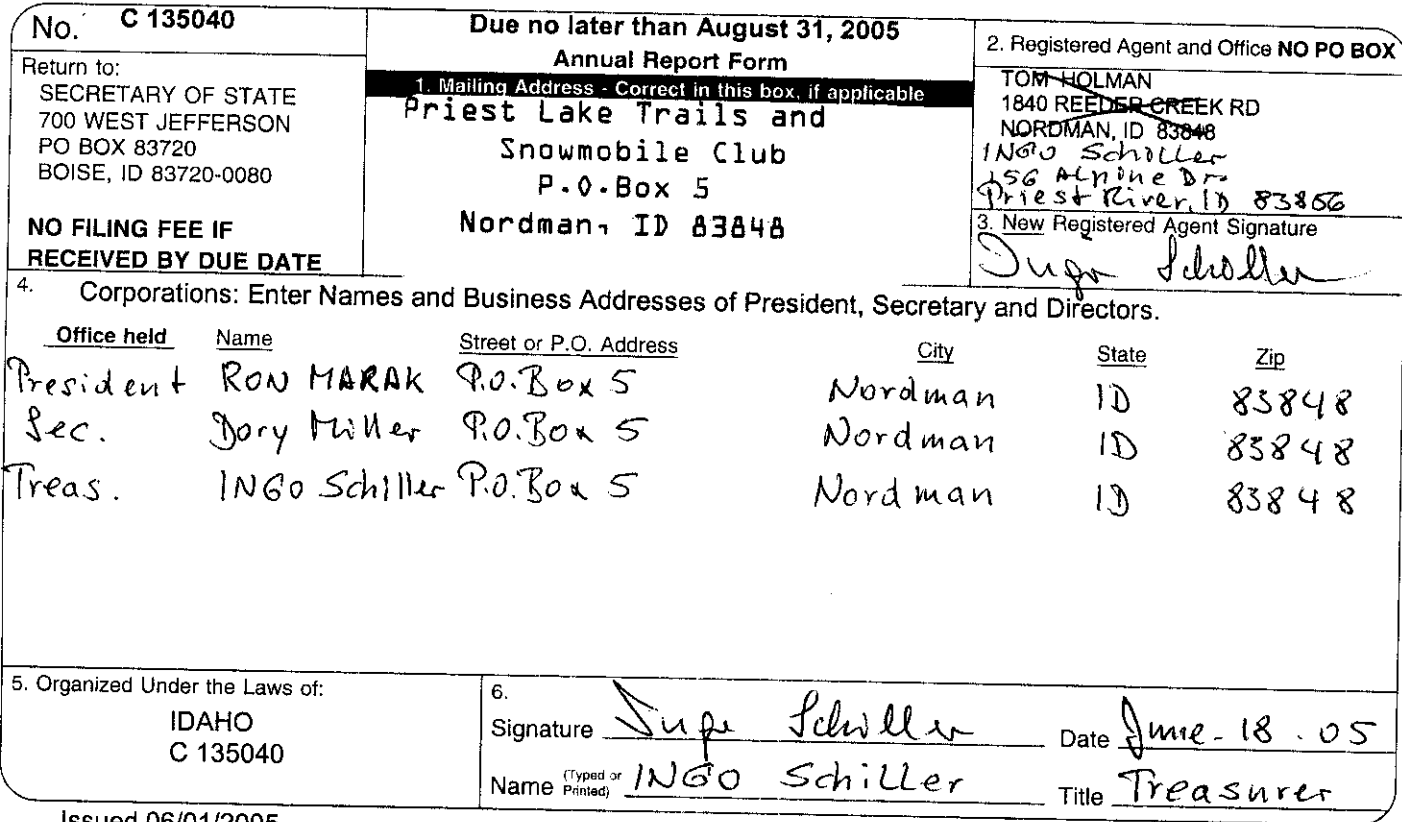 No. C 135040
Return to:
SECRETARY OF STATE
700 WEST JEFFERSON
PO BOX 83720
BOISE, ID 83720-0080
NO FILING FEE IF
RECEIVED BY DUE DATE
Due no later than August 31, 2005
Annual Report Form
1. Mailing Address - Correct in this box, if applicable
Priest Lake Trails and
Snowmobile Club
P.O.Box 5
Nordman, ID 83848
2. Registered Agent and Office NO PO BOX
TOM HOLMAN
1840 REEDER CREEK RD
NORDMAN, ID 83848
INGO Schiller
156 Alpine Dr.
Priest River, ID 83856
3. New Registered Agent Signature
Ingo Schiller
4. Corporations: Enter Names and Business Addresses of President, Secretary and Directors.
Office held Name Street or P.O. Address City State Zip
President RON MARAK P.O. Box 5 Nordman ID 83848
Sec. Dory Miller P.O. Box 5 Nordman ID 83848
Treas. INGO Schiller P.O. Box 5 Nordman ID 83848
5. Organized Under the Laws of:
IDAHO
C 135040
6.
Signature Ingo Schiller Date June - 18 . 05
Name (Typed or Printed) INGO Schiller Title Treasurer
Issued 06/01/2005